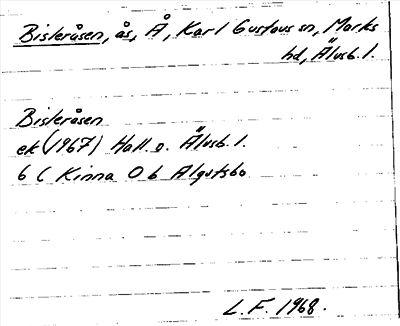 Bisleråsen, ås, Å, Karl Gustavs sn, Marks
hd, Älvsb. l.
Bisleråsen
ek (1967) Hall. o. Älvsb. l.
6 C Kinna 0 b Algutsbo
L. F. 1968.